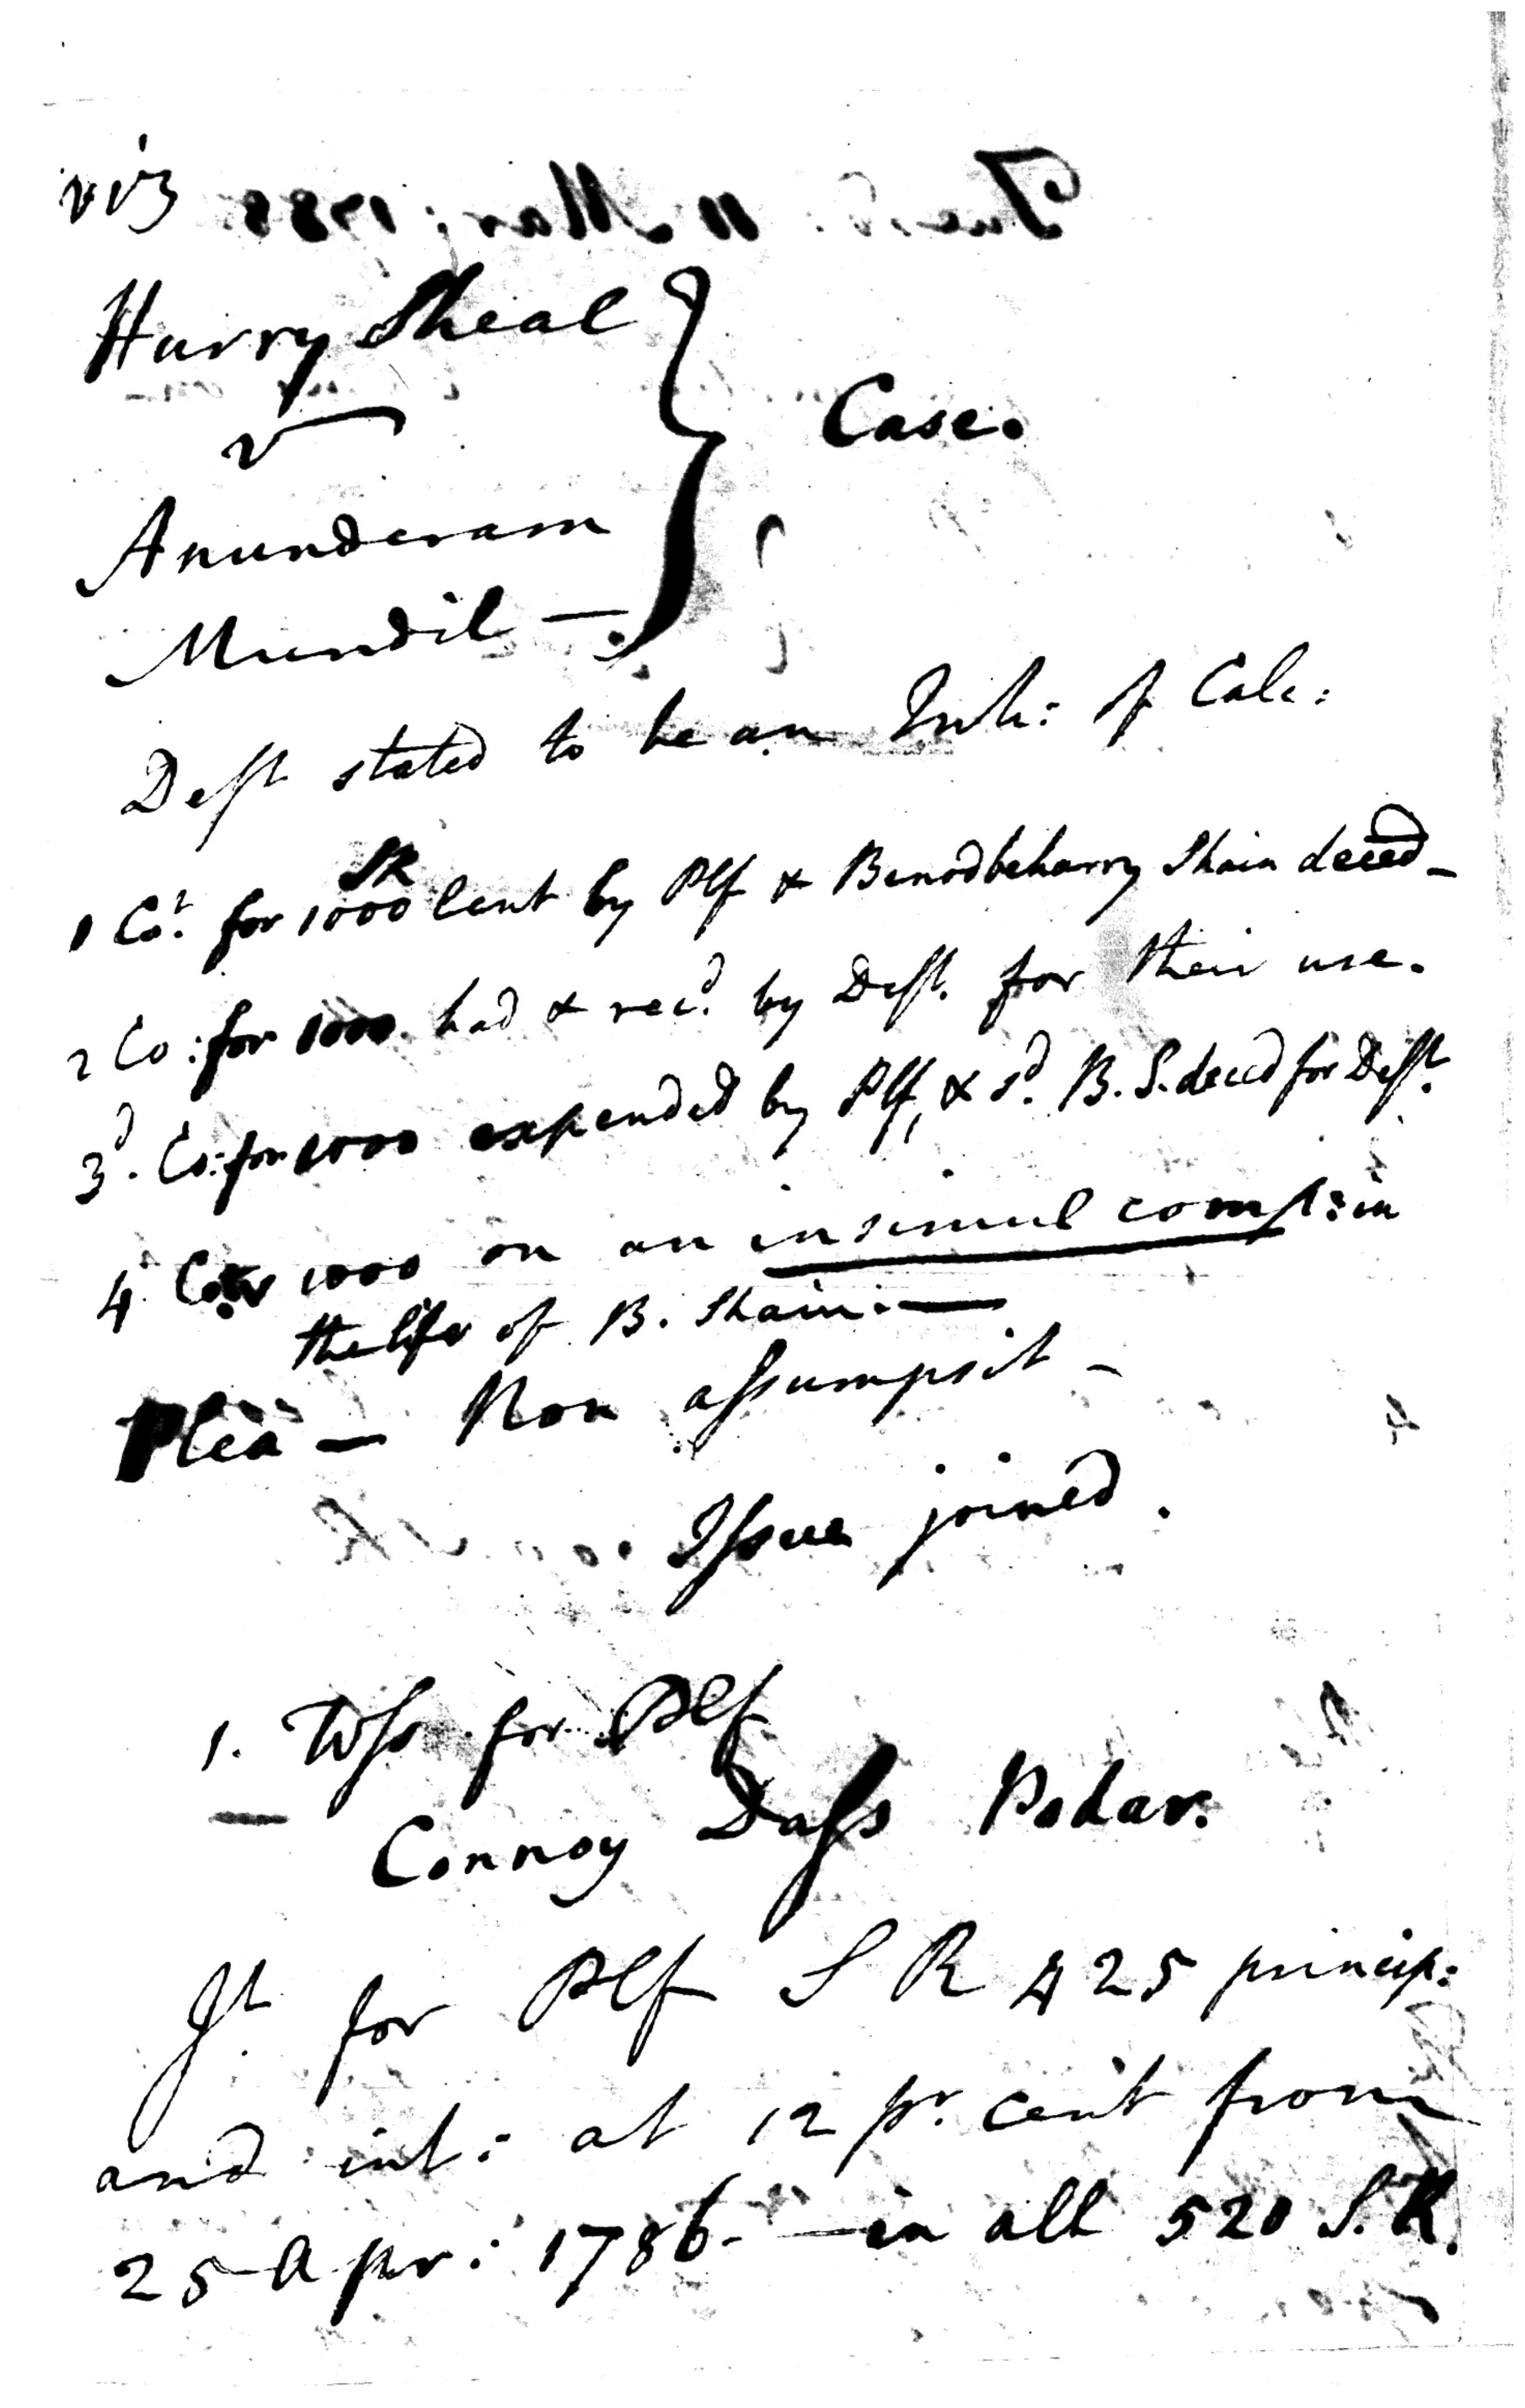 viz
Hurry Sheal
v
Case.
Anunderam
Mundil —
Deft stated to be an Inh: of Calc:
1 Ct. for 1000 SR lent by Plf & Benodbeharry Shain deced —
2 Co: for 1000 had & recd. by Deft. for their use.
3d. Co: for 1000 expended by Plf, & sd. B. S. deced for Deft.
4 Co: 1000 on an insimul compt: in
the life of B. Shain. —
Plea — Non assumpsit —
Issue joined.
1. Wss for Plf
Connoy Dass Podar.
Jt for Plf S R 425 princip:
and int: at 12 pr. cent from
25 Apr: 1786. — in all 520 S.R.